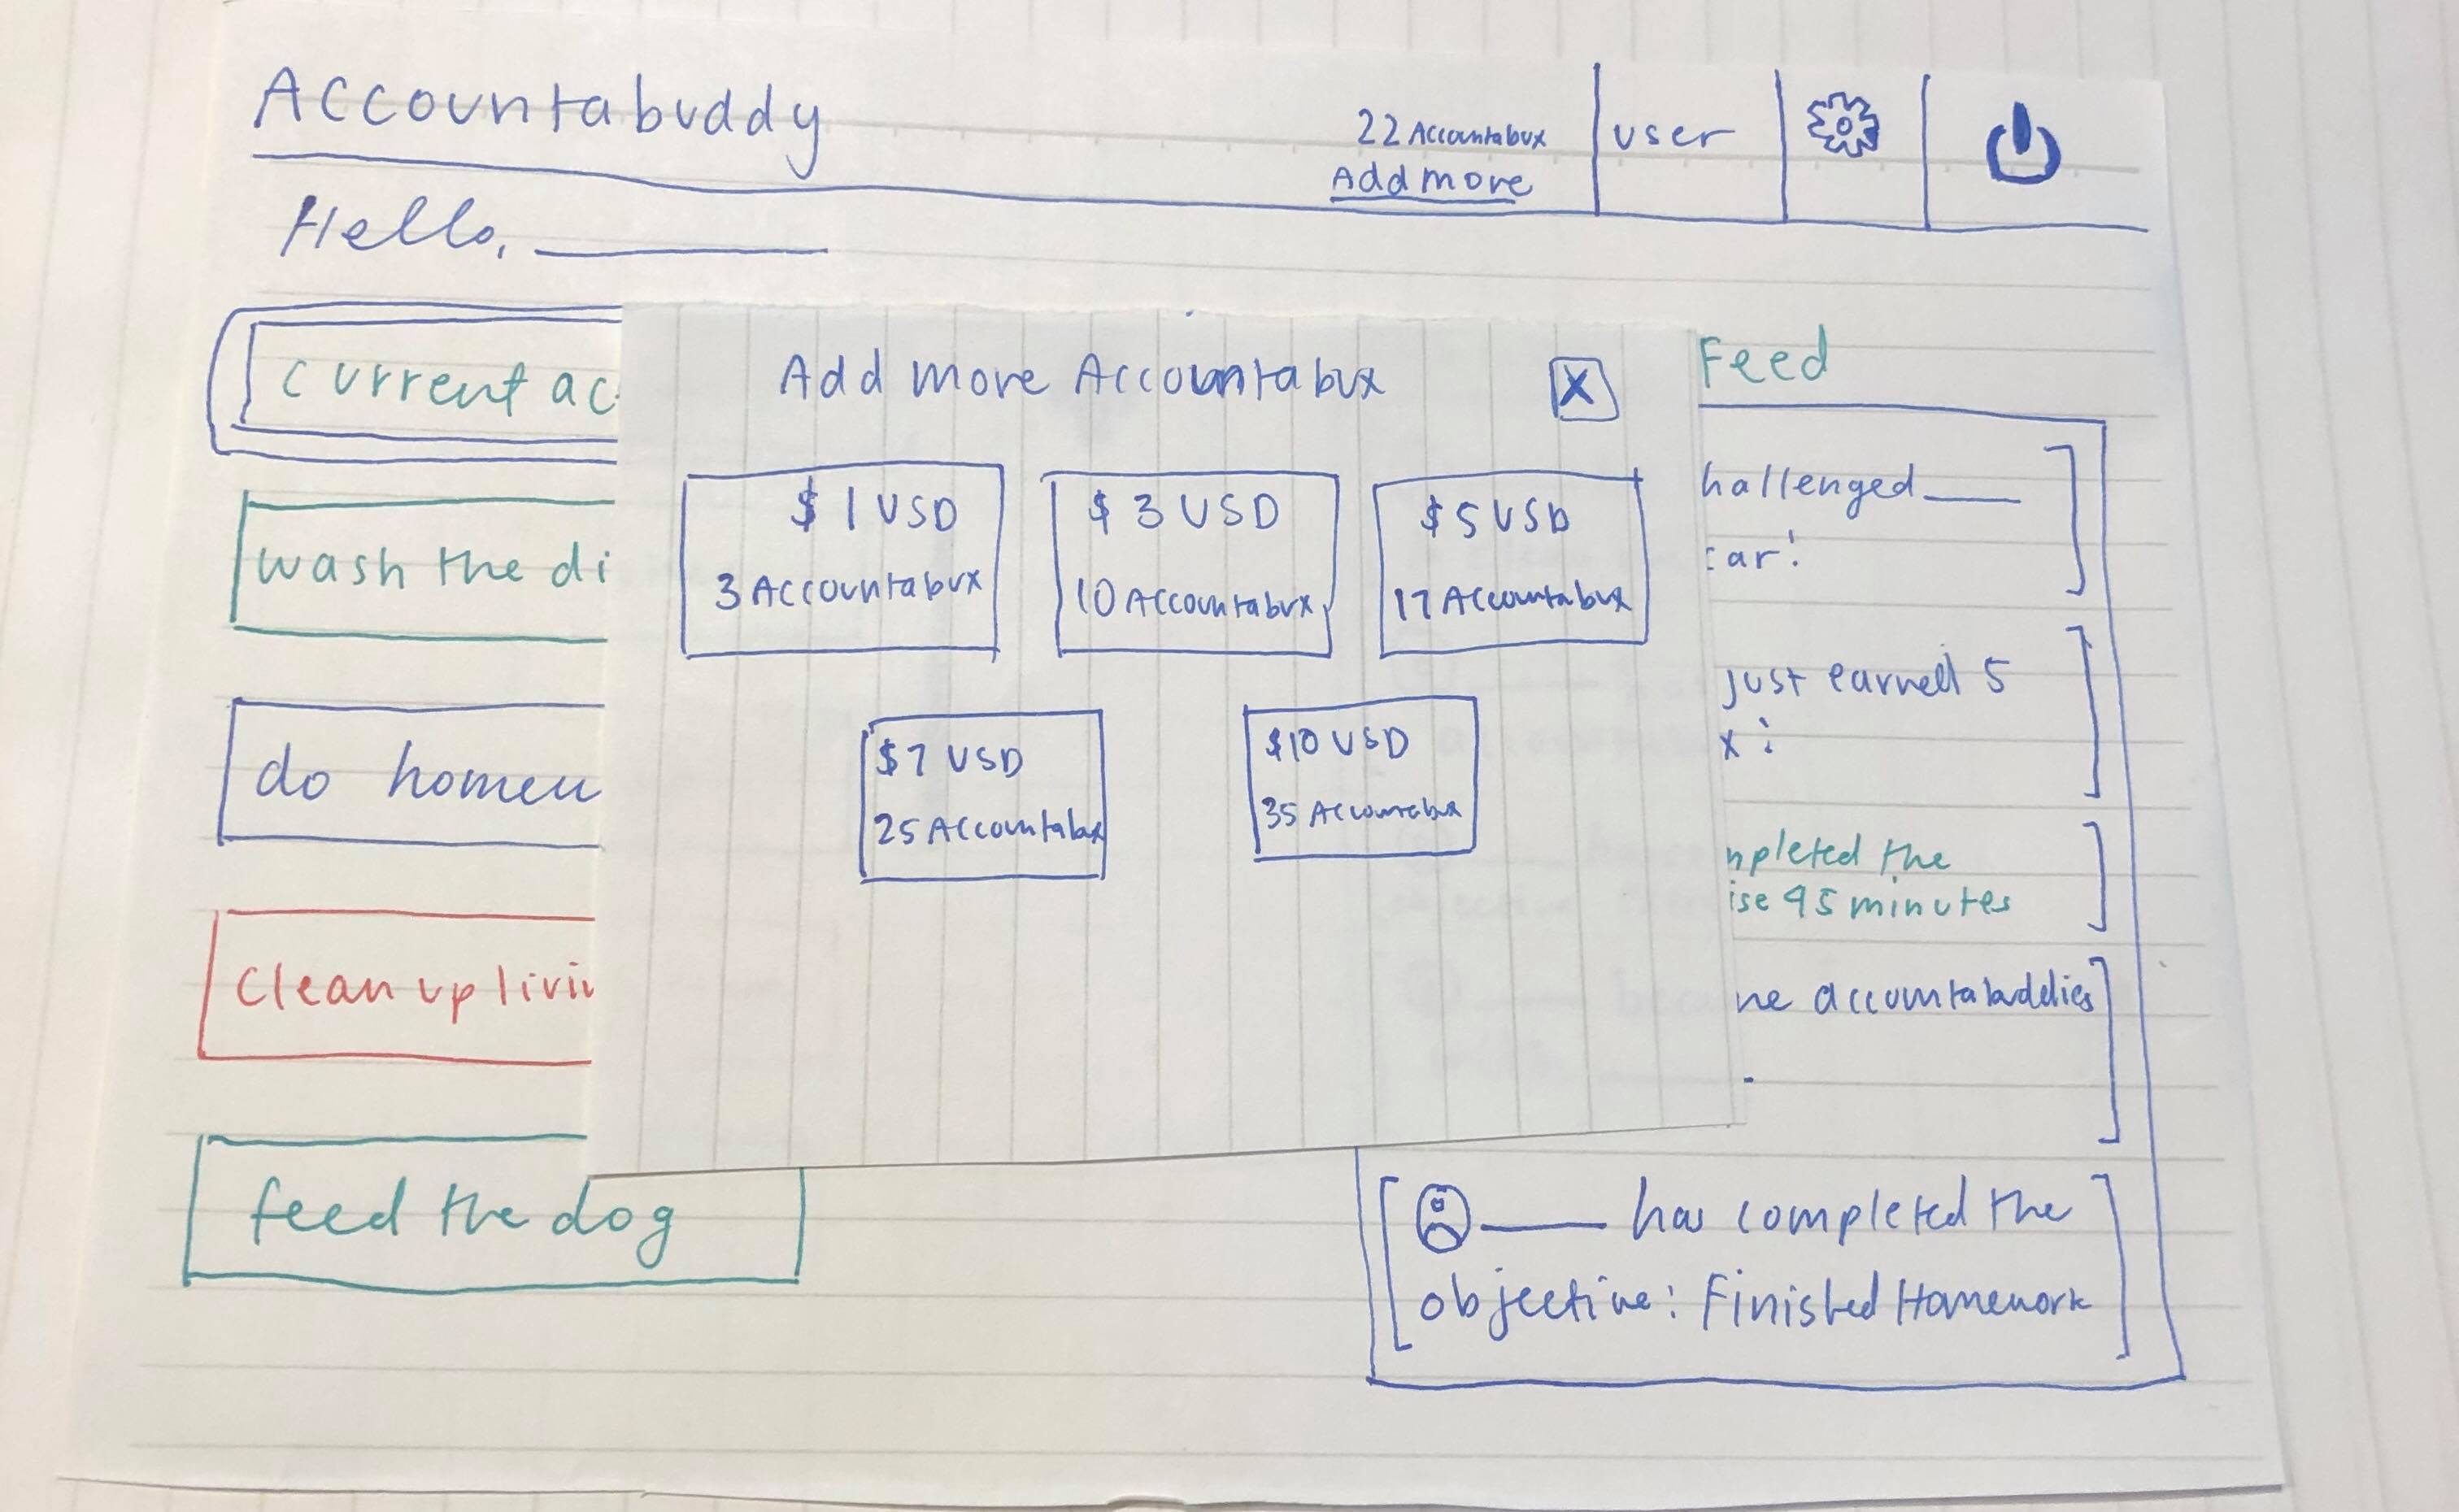 Accountabuddy
22 Accountabux
Add more
user
Hello,
current ac
wash the di
do homew
clean up livin
feed the dog
Add more Accountabux
X
$1 USD
3 Accountabux
$3 USD
10 Accountabux
$5 USD
17 Accountabux
$7 USD
25 Accountabux
$10 USD
35 Accountabux
Feed
hallenged
car!
just earned 5
x!
mpleted the
ise 45 minutes
me accountabuddies
has completed the
objective: Finished Homework